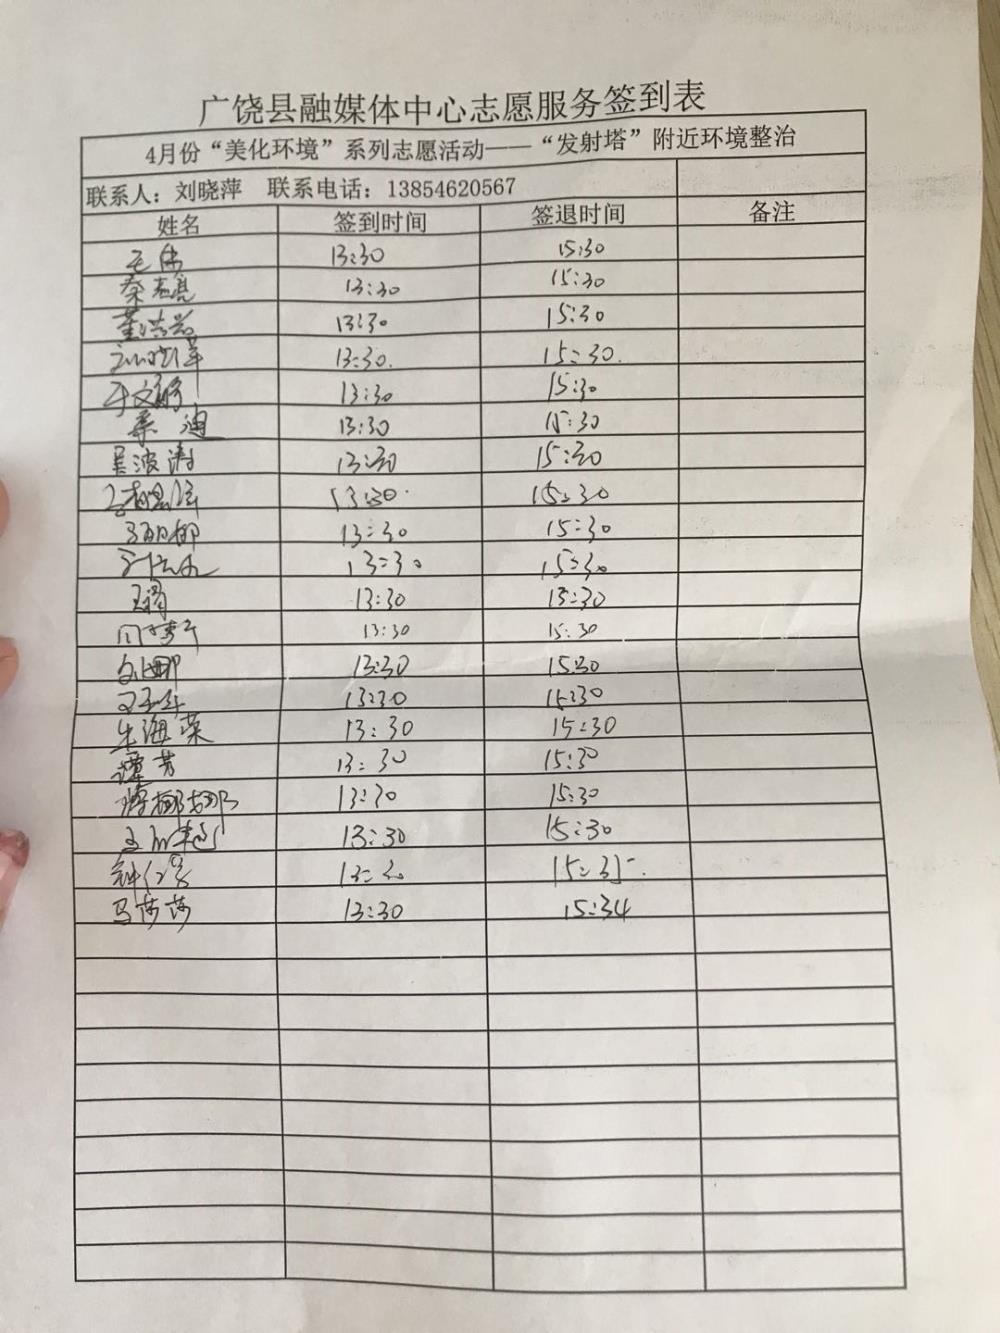 广饶县融媒体中心志愿服务签到表
4月份“美化环境”系列志愿活动——“发射塔”附近环境整治
联系人：刘晓萍 联系电话：13854620567
姓名 签到时间 签退时间 备注
王伟 13:30 15:30
秦志亮 13:30 15:30
董洪岩 13:30 15:30
刘晓萍 13:30. 15:30.
13:30 15:30
桑迪 13:30 15:30
吴波涛 13:30 15:30
13:30 15:30
13:30 15:30
13:30 15:30
王娟 13:30 15:30
13:30 15:30
13:30 15:30
13:30 15:30
牛海荣 13:30 15:30
谭芳 13:30 15:30
13:30 15:30
13:30 15:30
13:30 15:35.
马莎莎 13:30 15:34